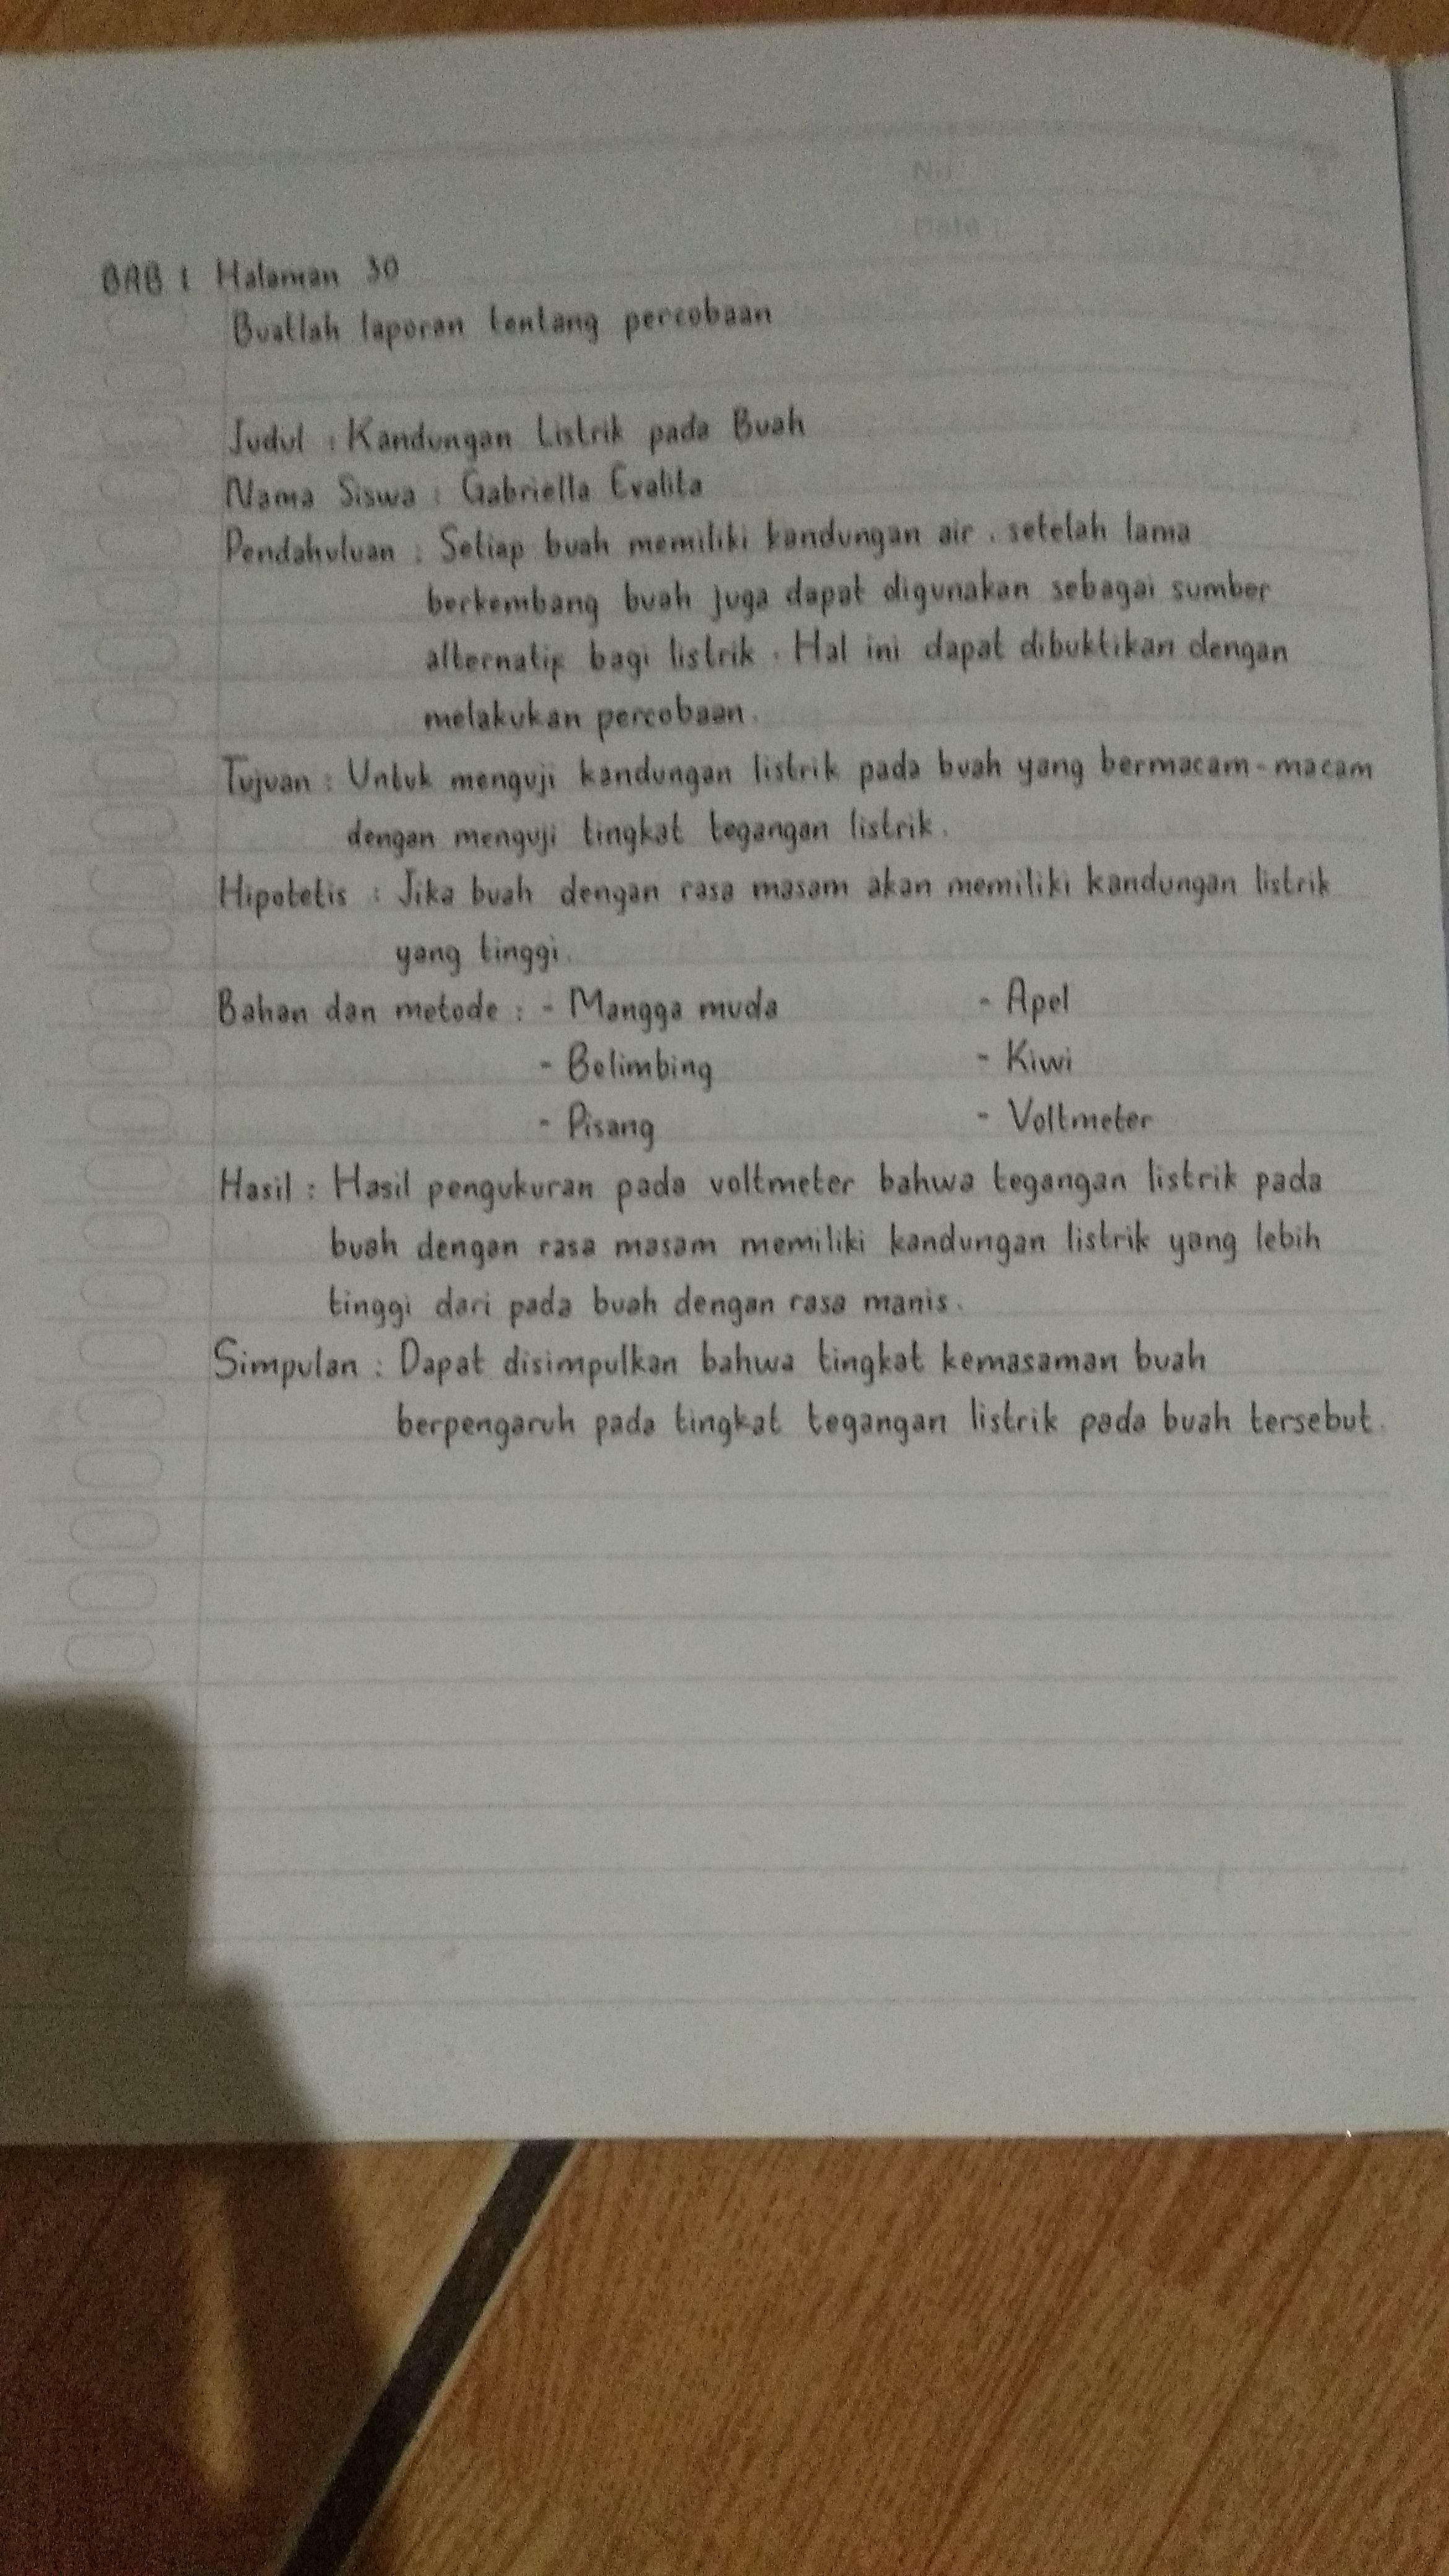 No
Date :
BAB 1 Halaman 30
Buatlah laporan tentang percobaan
Judul : Kandungan Listrik pada Buah
Nama Siswa : Gabriella Evalita
Pendahuluan : Setiap buah memiliki kandungan air, setelah lama
berkembang buah juga dapat digunakan sebagai sumber
alternatif bagi listrik. Hal ini dapat dibuktikan dengan
melakukan percobaan.
Tujuan : Untuk menguji kandungan listrik pada buah yang bermacam-macam
dengan menguji tingkat tegangan listrik.
Hipotetis : Jika buah dengan rasa masam akan memiliki kandungan listrik
yang tinggi.
Bahan dan metode : - Mangga muda - Apel
- Belimbing - Kiwi
- Pisang - Voltmeter
Hasil : Hasil pengukuran pada voltmeter bahwa tegangan listrik pada
buah dengan rasa masam memiliki kandungan listrik yang lebih
tinggi dari pada buah dengan rasa manis.
Simpulan : Dapat disimpulkan bahwa tingkat kemasaman buah
berpengaruh pada tingkat tegangan listrik pada buah tersebut.